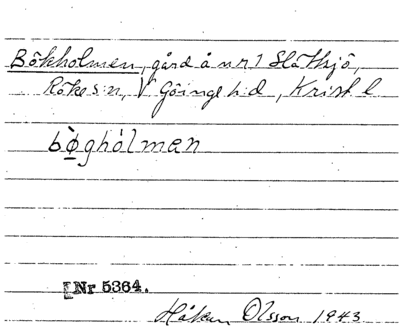 Bökholmen, gård å nr 1 Slättsjö,
Röke s:n, V Göinge hd, Krist l
bø̀ghólmen
Nr 5364.
Håkan Olsson 1943